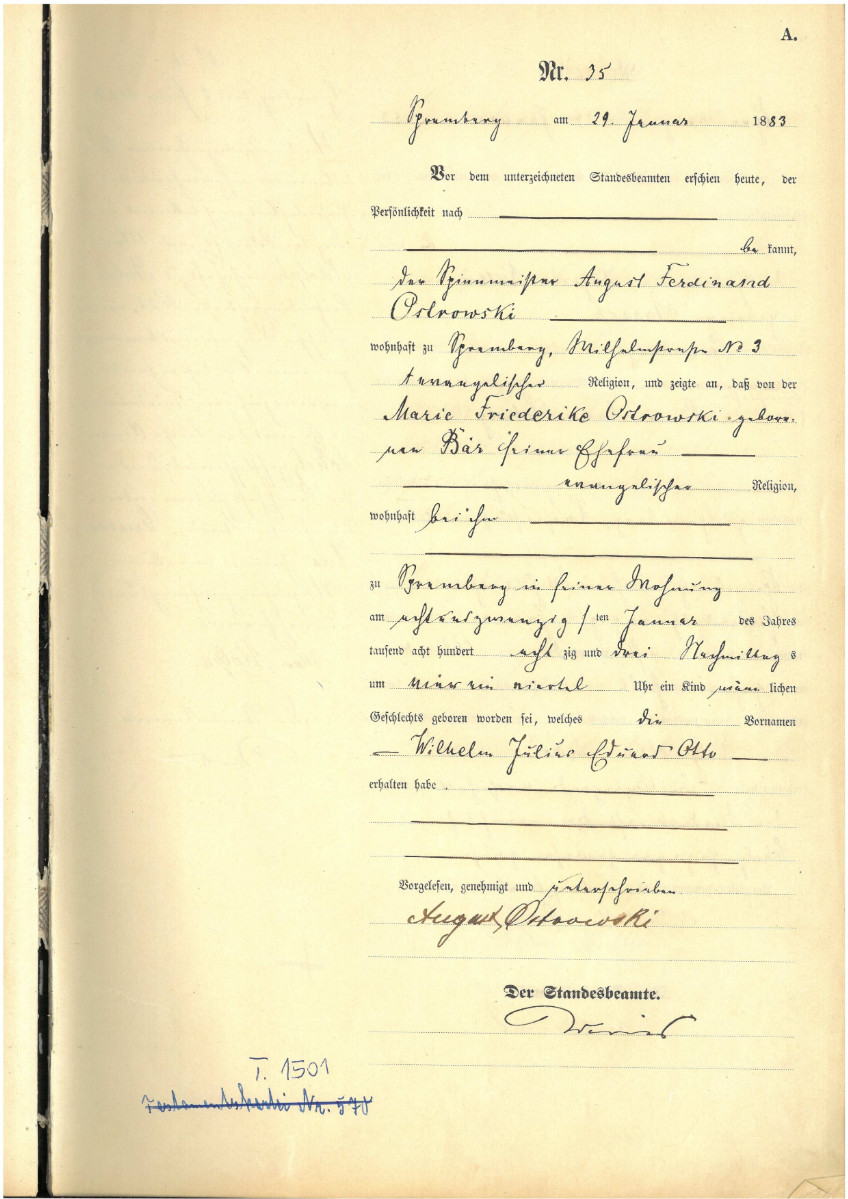 A.
Nr. 35
Spremberg am 29. Januar 1883
Vor dem unterzeichneten Standesbeamten erschien heute, der
Persönlichkeit nach
bekannt,
der Spinnmeister August Ferdinand
Ostrowski
wohnhaft zu Spremberg, Wilhelmstraße No 3
evangelischer Religion, und zeigte an, daß von der
Marie Friederike Ostrowski gebore-
nen Bär seiner Ehefrau
evangelischer Religion,
wohnhaft bei ihm
zu Spremberg in seiner Wohnung
am achtundzwanzig ten Januar des Jahres
tausend acht hundert acht zig und drei Nachmittag s
um ein viertel Uhr ein Kind männ lichen
Geschlechts geboren worden sei, welches die Vornamen
Wilhelm Julius Eduard Otto
erhalten habe.
Vorgelesen, genehmigt und unterschrieben
August Ostrowski
Der Standesbeamte.
T. 1501
Testamentskartei Nr. 570